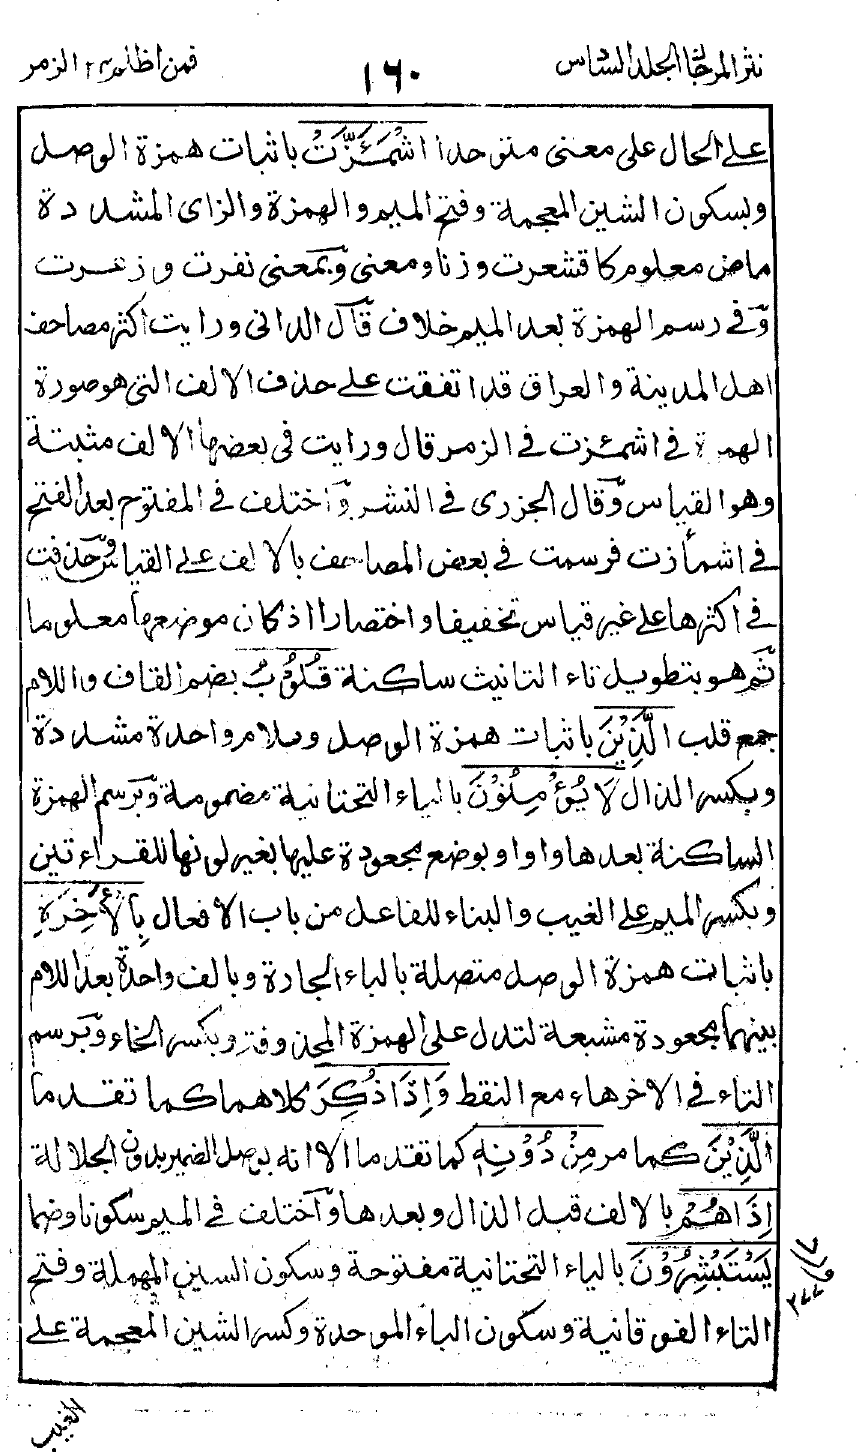 نثر المرجان الجلد السادس
١٦٠
فمن اظلم ٢٤ الزمر
على الحال على معنى متوحدا اشْمَئَزَّتْ باثبات همزة الوصل
وبسكون الشين المعجمة وفتح الميم والهمزة والزاى المشددة
ماض معلوم كاقشعرت وزنا ومعنى وبمعنى نفرت وذعرت
وفى رسم الهمزة بعد الميم خلاف قال الدانى ورايت اكثر مصاحف
اهل المدينة والعراق قد اتفقت على حذف الالف التى هو صورة
الهمزة فى اشمئزت فى الزمر قال ورايت فى بعضها الالف مثبتة
وهو القياس وقال الجزرى فى النشر واختلف فى المفتوح بعد الفتح
فى اشمأزت فرسمت فى بعض المصاحف بالالف على القياس وحذفت
فى اكثرها على غير قياس تخفيفا واختصارا اذ كان موضعها معلوما
ثم هو بتطويل تاء التانيث ساكنة قُلُوْبُ بضم القاف واللام
جمع قلب الَّذِيْنَ باثبات همزة الوصل وبلام واحدة مشددة
وبكسر الذال لَا يُؤْمِنُوْنَ بالياء التحتانية مضمومة وبرسم الهمزة
الساكنة بعدها واوا وبوضع مجعودة عليها بغير لونها للقراءتين
وبكسر الميم على الغيب والبناء للفاعل من باب الافعال بِالْأٰخِرَةِ
باثبات همزة الوصل متصلة بالباء الجارة وبالف واحدة بعد اللام
بينهما مجعودة مشبعة لتدل على الهمزة المحذوفة وبكسر الخاء وبرسم
التاء فى الاخر هاء مع النقط وَإِذَا ذُكِرَ كلاهما كما تقدما
الَّذِيْنَ كما مر مِنْ دُوْنِهٖ كما تقدما الا انه بوصل الضمير بدون الجلالة
إِذَا هُمْ بالالف قبل الذال وبعدها واختلف فى الميم سكونا وضما
يَسْتَبْشِرُوْنَ بالياء التحتانية مفتوحة وسكون السين المهملة وفتح
التاء الفوقانية وسكون الباء الموحدة وكسر الشين المعجمة على
الغيب